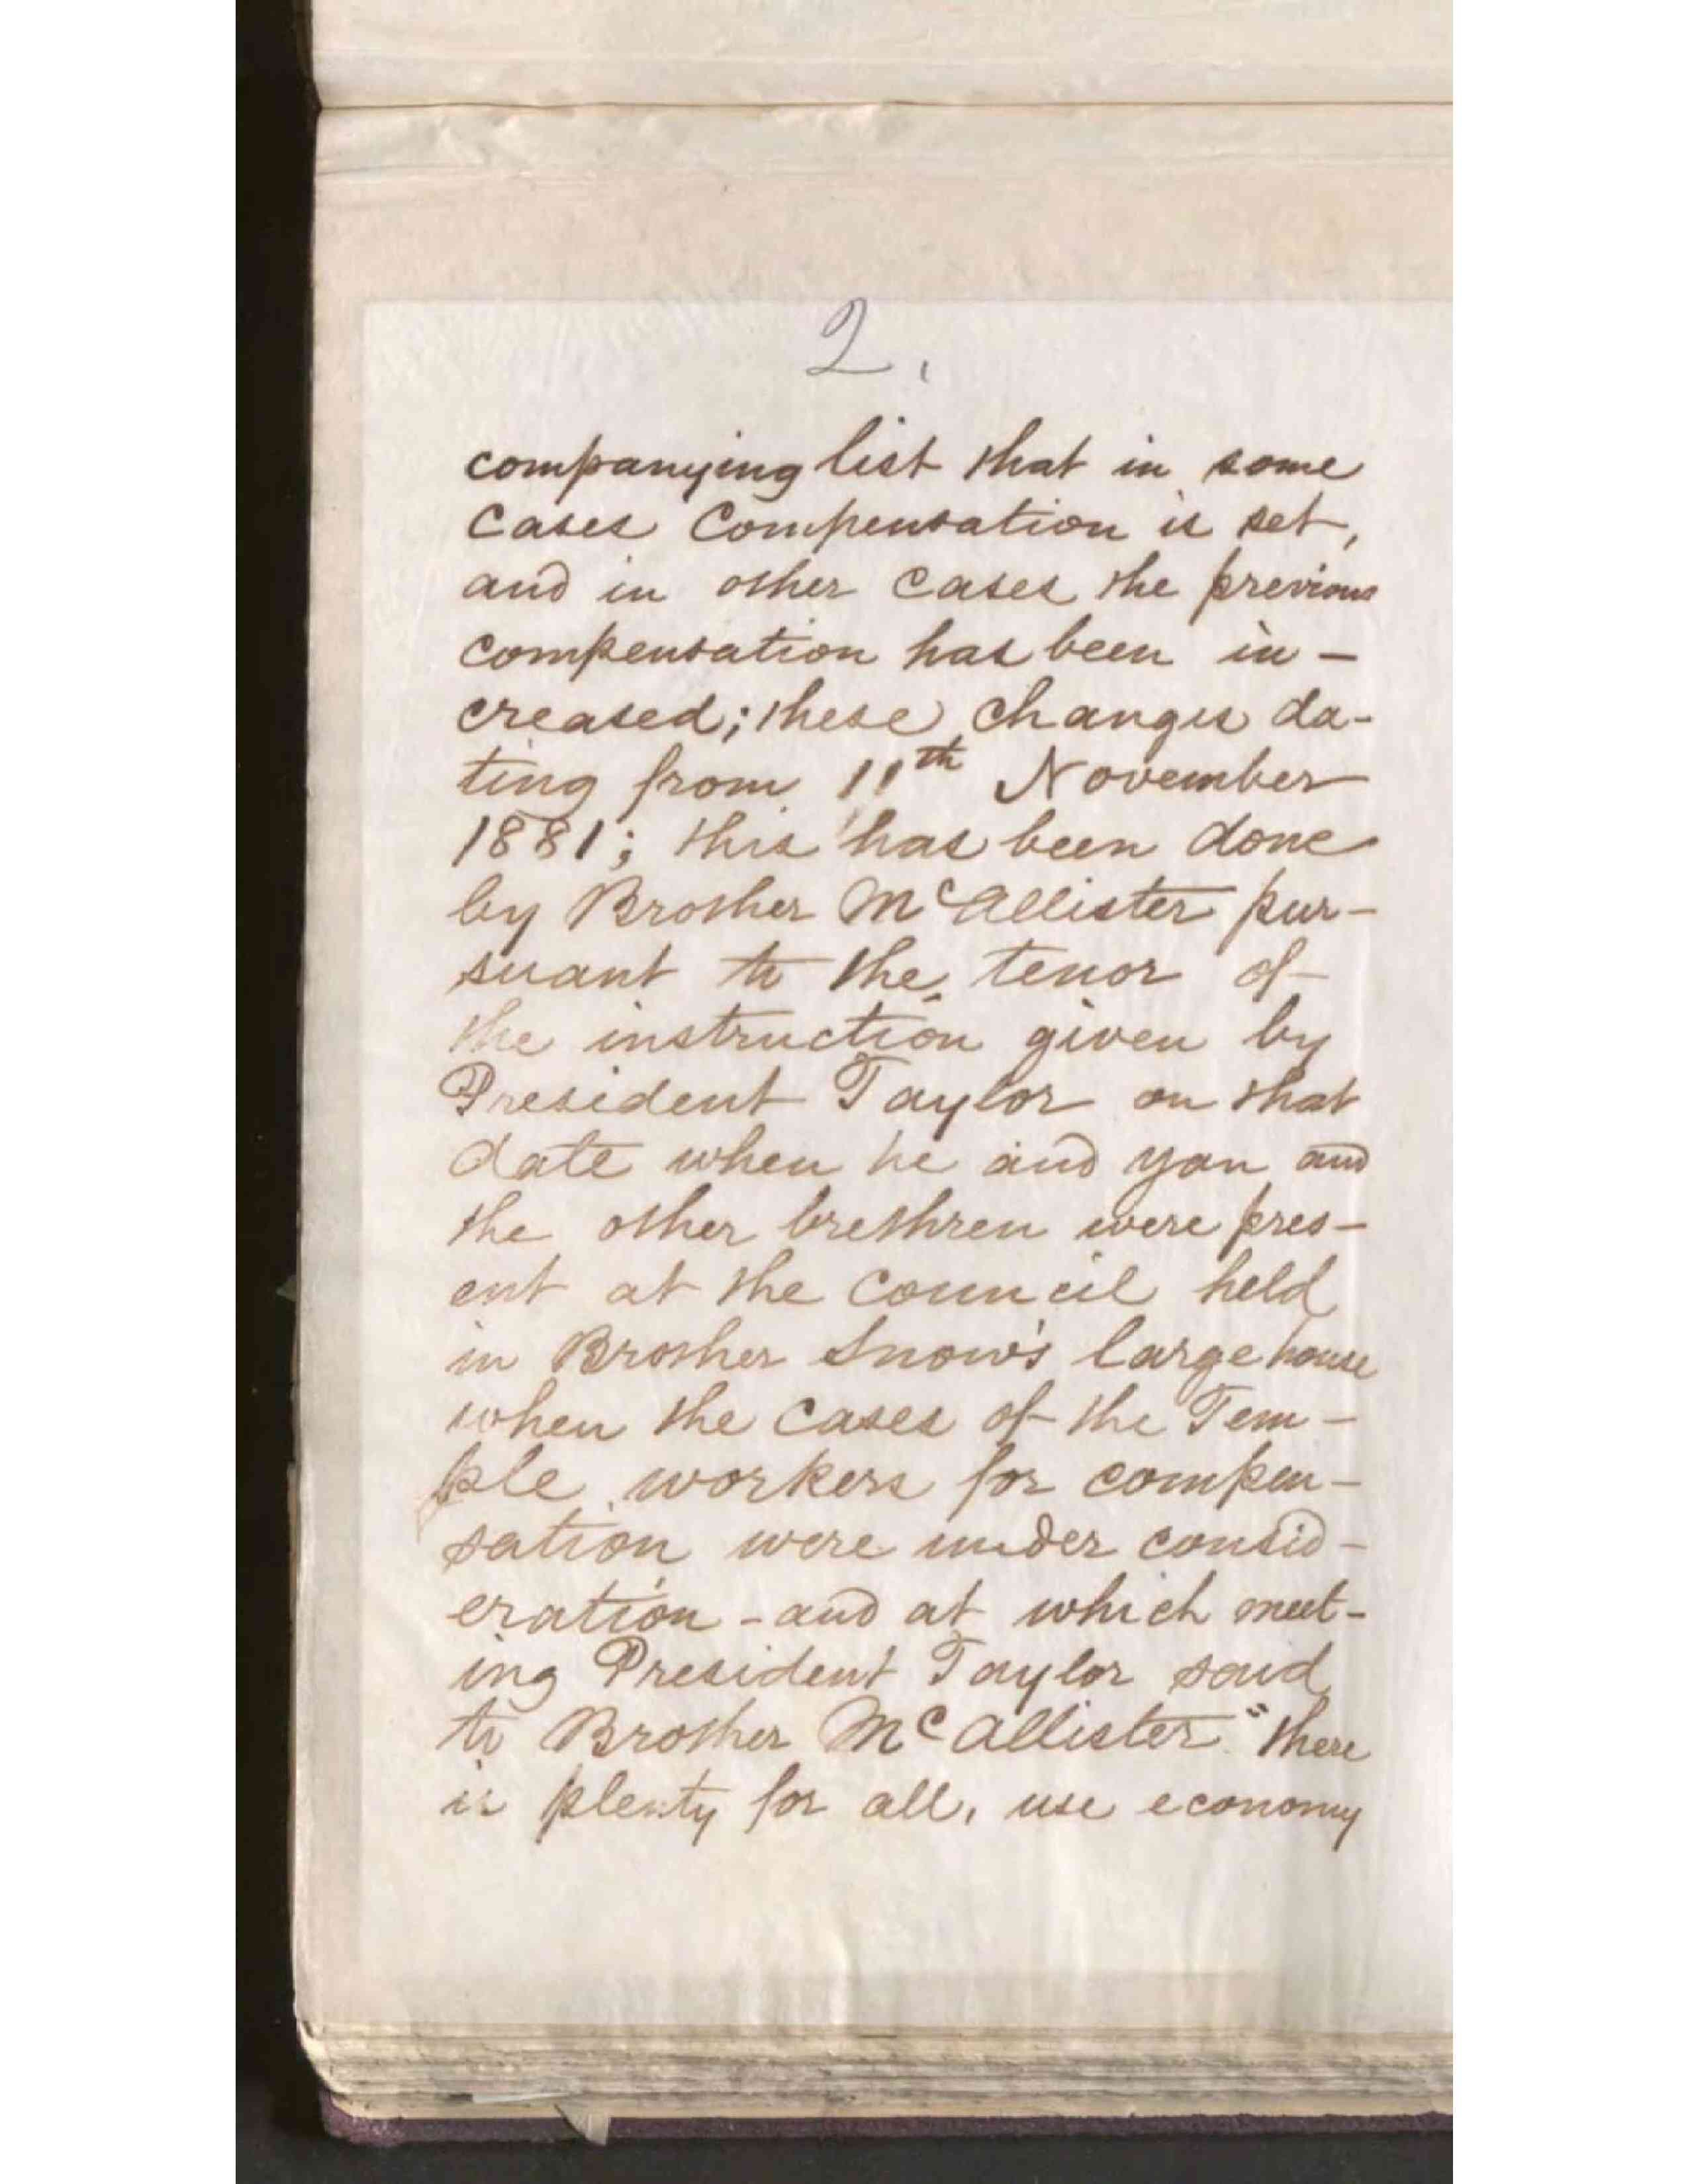 2.
companying list that in some
cases compensation is set,
and in other cases the previous
compensation has been in-
creased; these changes da-
ting from 11th November
1881; this has been done
by Brother McAllister pur-
suant to the tenor of
the instruction given by
President Taylor on that
date when he and you and
the other brethren were pres-
ent at the council held
in Brother Snow's large house
when the cases of the Tem-
ple workers for compen-
sation were under consid-
eration - and at which meet-
ing President Taylor said
to Brother McAllister "there
is plenty for all, use economy